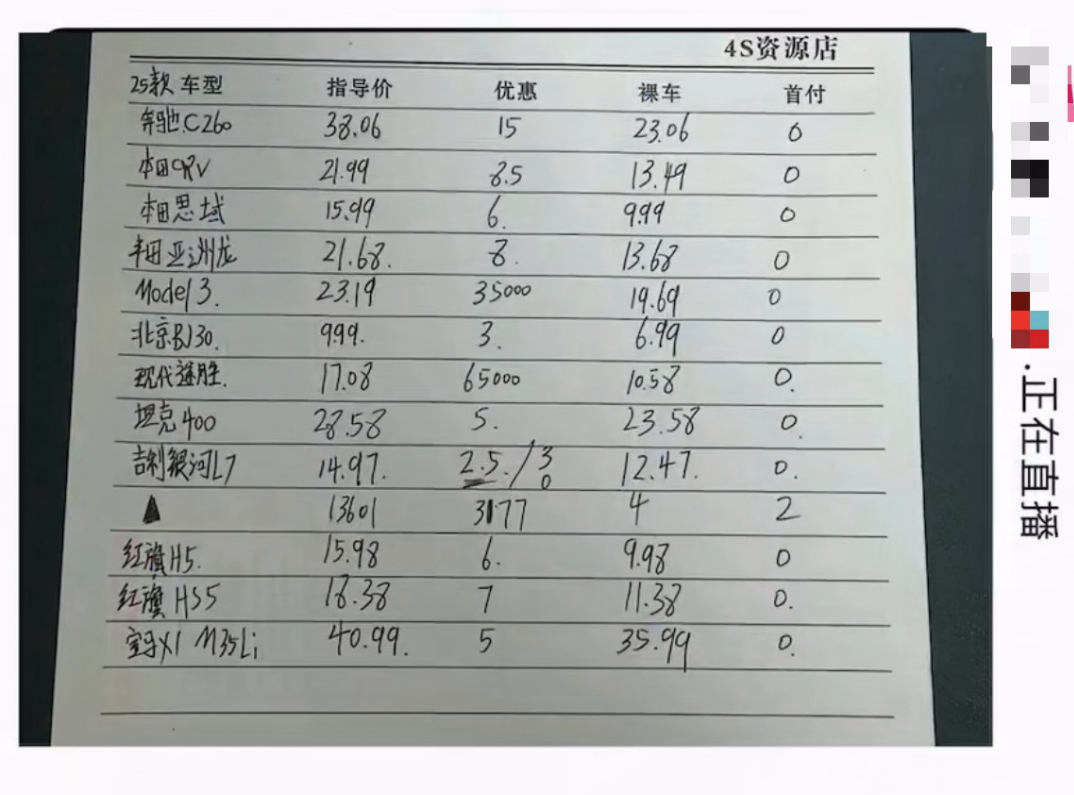 4S资源店
25款 车型 指导价 优惠 裸车 首付
奔驰C260 38.06 15 23.06 0
本田CRV 21.99 8.5 13.49 0
本田思域 15.99 6. 9.99 0
丰田亚洲龙 21.68. 8. 13.68 0
Model 3. 23.19 35000 19.69 0
北京BJ30. 9.99. 3. 6.99 0
现代途胜. 17.08 65000 10.58 0.
坦克400 28.58 5. 23.58 0.
吉利银河L7 14.97. 2.5./3 0 12.47. 0.
▲ 13601 3177 4 2
红旗H5. 15.98 6. 9.98 0
红旗HS5 18.38 7 11.38 0.
宝马X1 M35Li 40.99. 5 35.99 0.
.正在直播